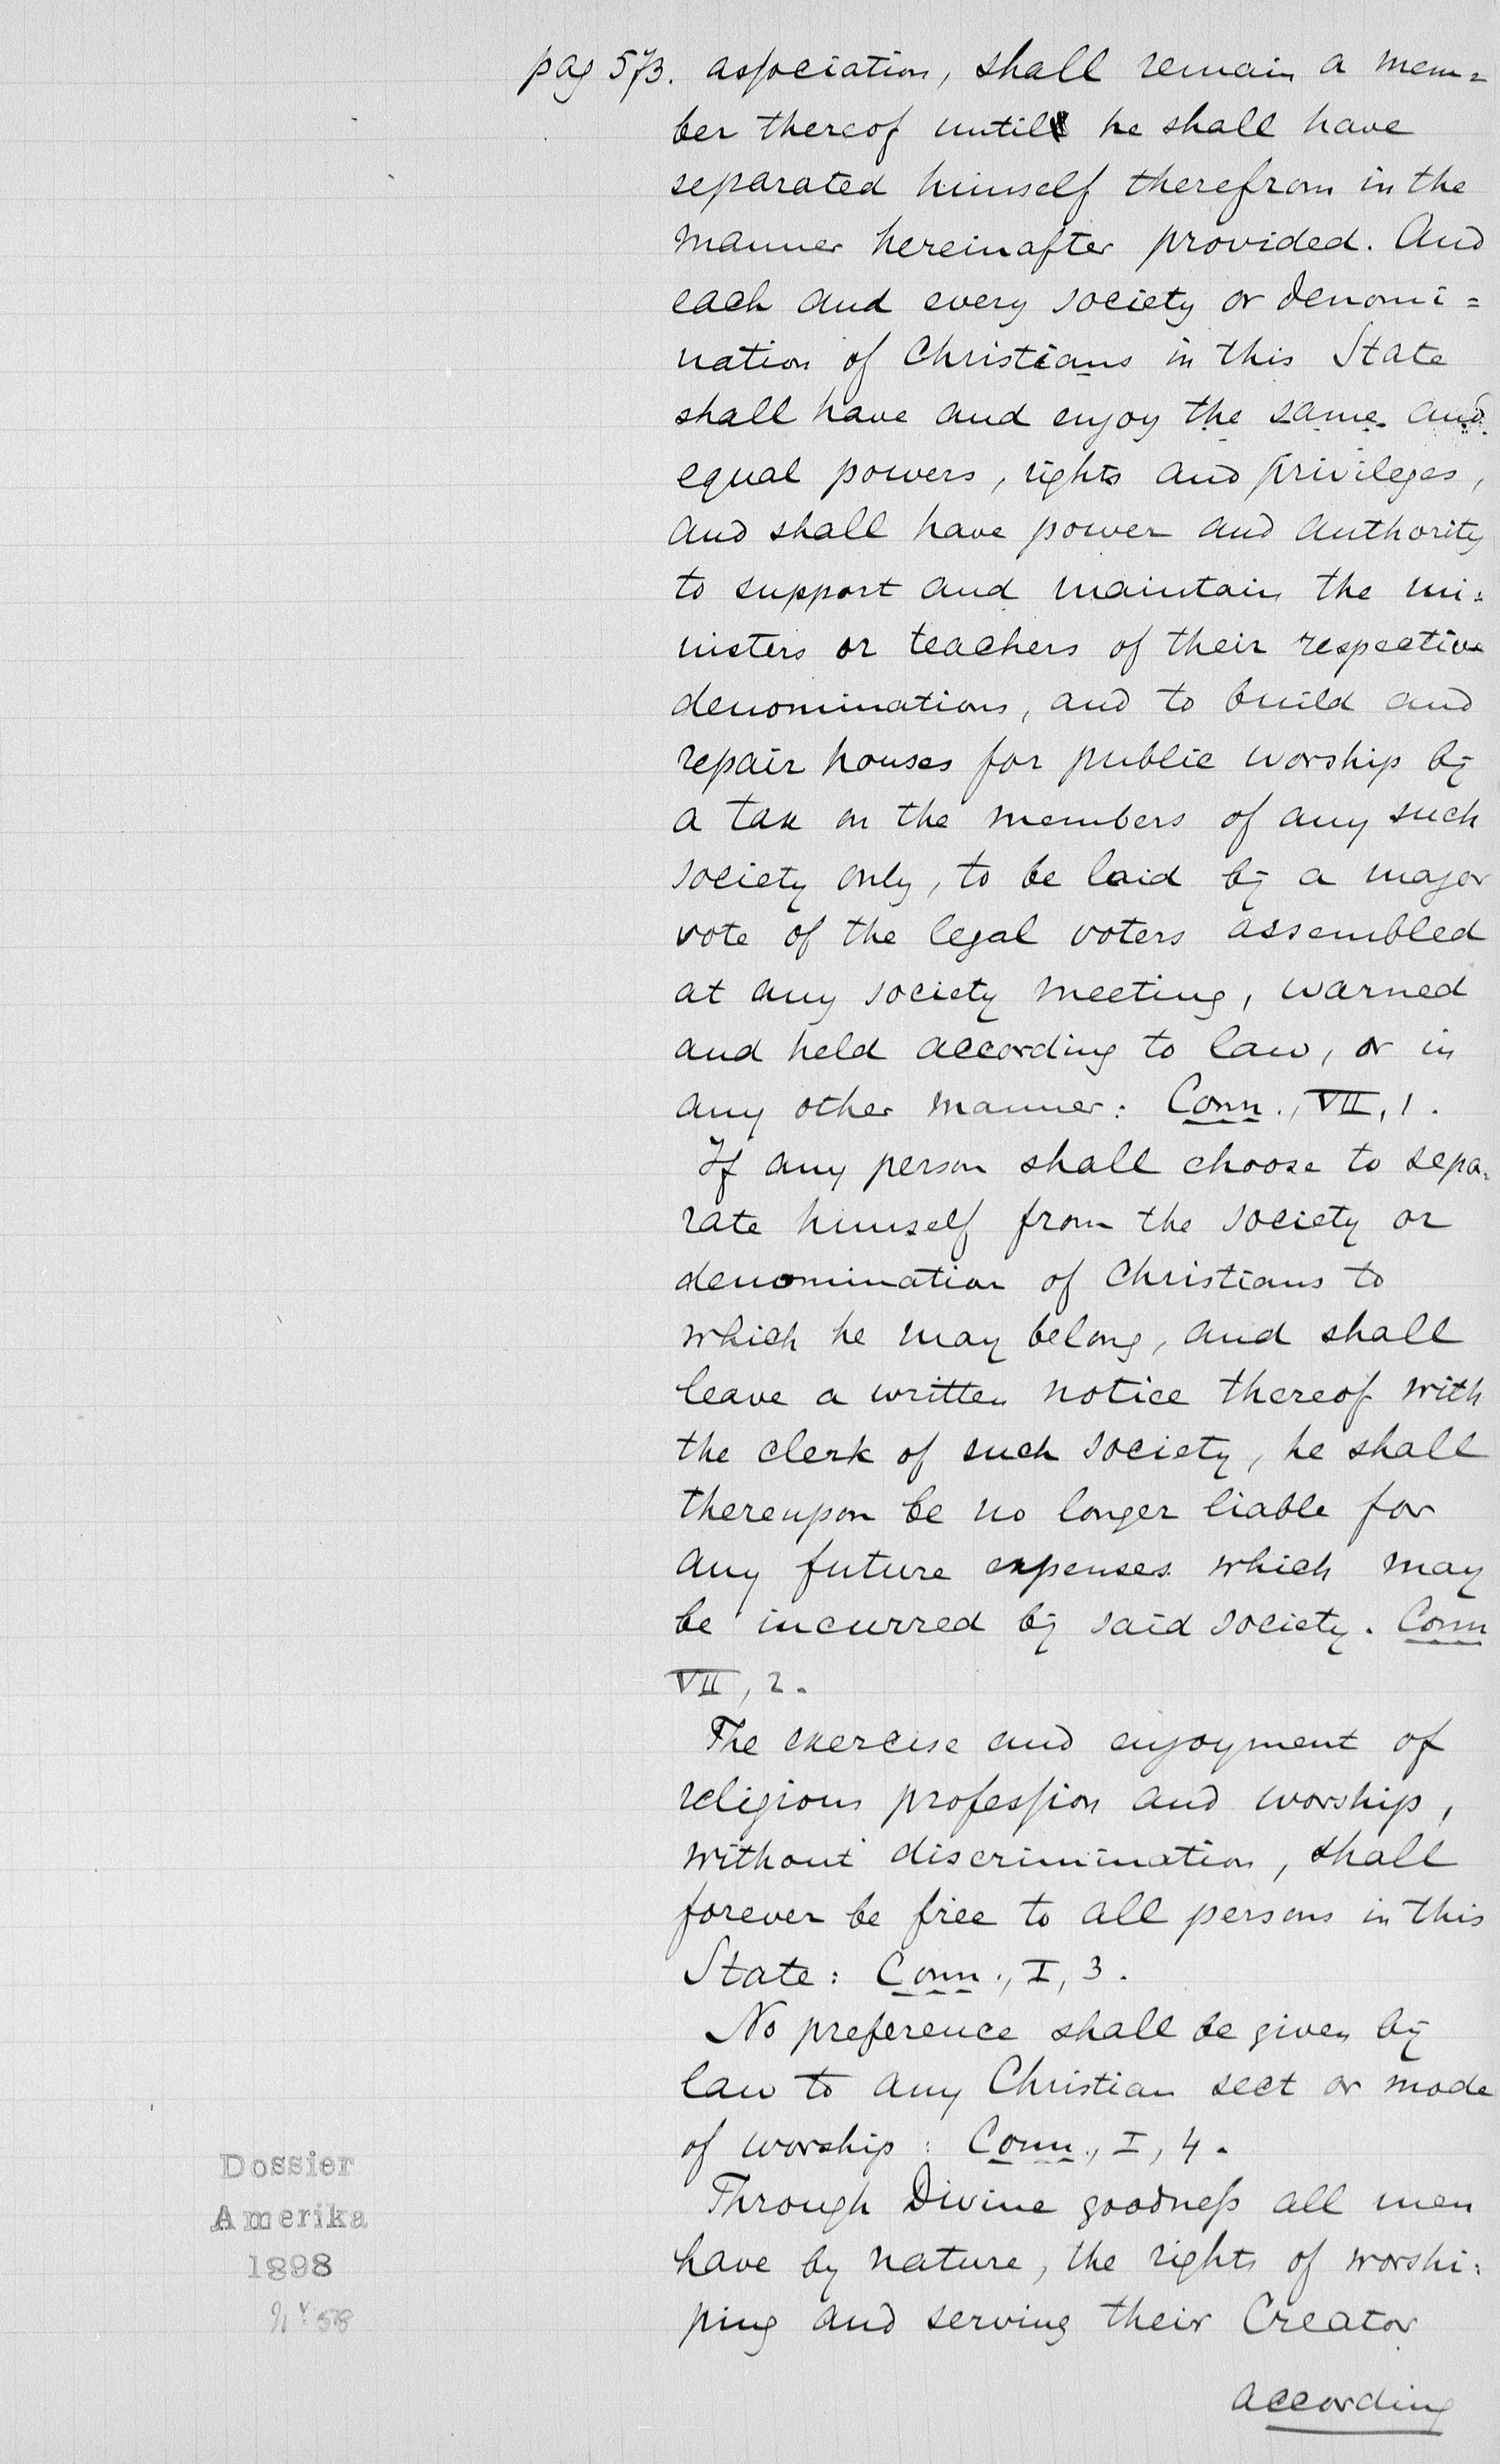 pag 573. association, shall remain a mem=
ber thereof until he shall have
separated himself therefrom in the
manner hereinafter provided. And
each and every society or denomi=
nation of Christians in this State
shall have and enjoy the same and
equal powers, rights and privileges,
and shall have power and authority
to support and maintain the mi=
nisters or teachers of their respective
denominations, and to build and
repair houses for public worship by
a tax on the members of any such
society only, to be laid by a major
vote of the legal voters assembled
at any society meeting, warned
and held according to law, or in
any other manner: Conn., VII, 1.
If any person shall choose to sepa=
rate himself from the society or
denomination of Christians to
which he may belong, and shall
leave a written notice thereof with
the clerk of such society, he shall
thereupon be no longer liable for
any future expenses which may
be incurred by said society. Conn
VII, 2.
The exercise and enjoyment of
religious profession and worship,
without discrimination, shall
forever be free to all persons in this
State: Conn., I, 3.
No preference shall be given by
law to any Christian sect or mode
of worship: Conn., I, 4.
Through Divine goodness all men
have by nature, the rights of worshi=
ping and serving their Creator
according
Dossier
Amerika
1898